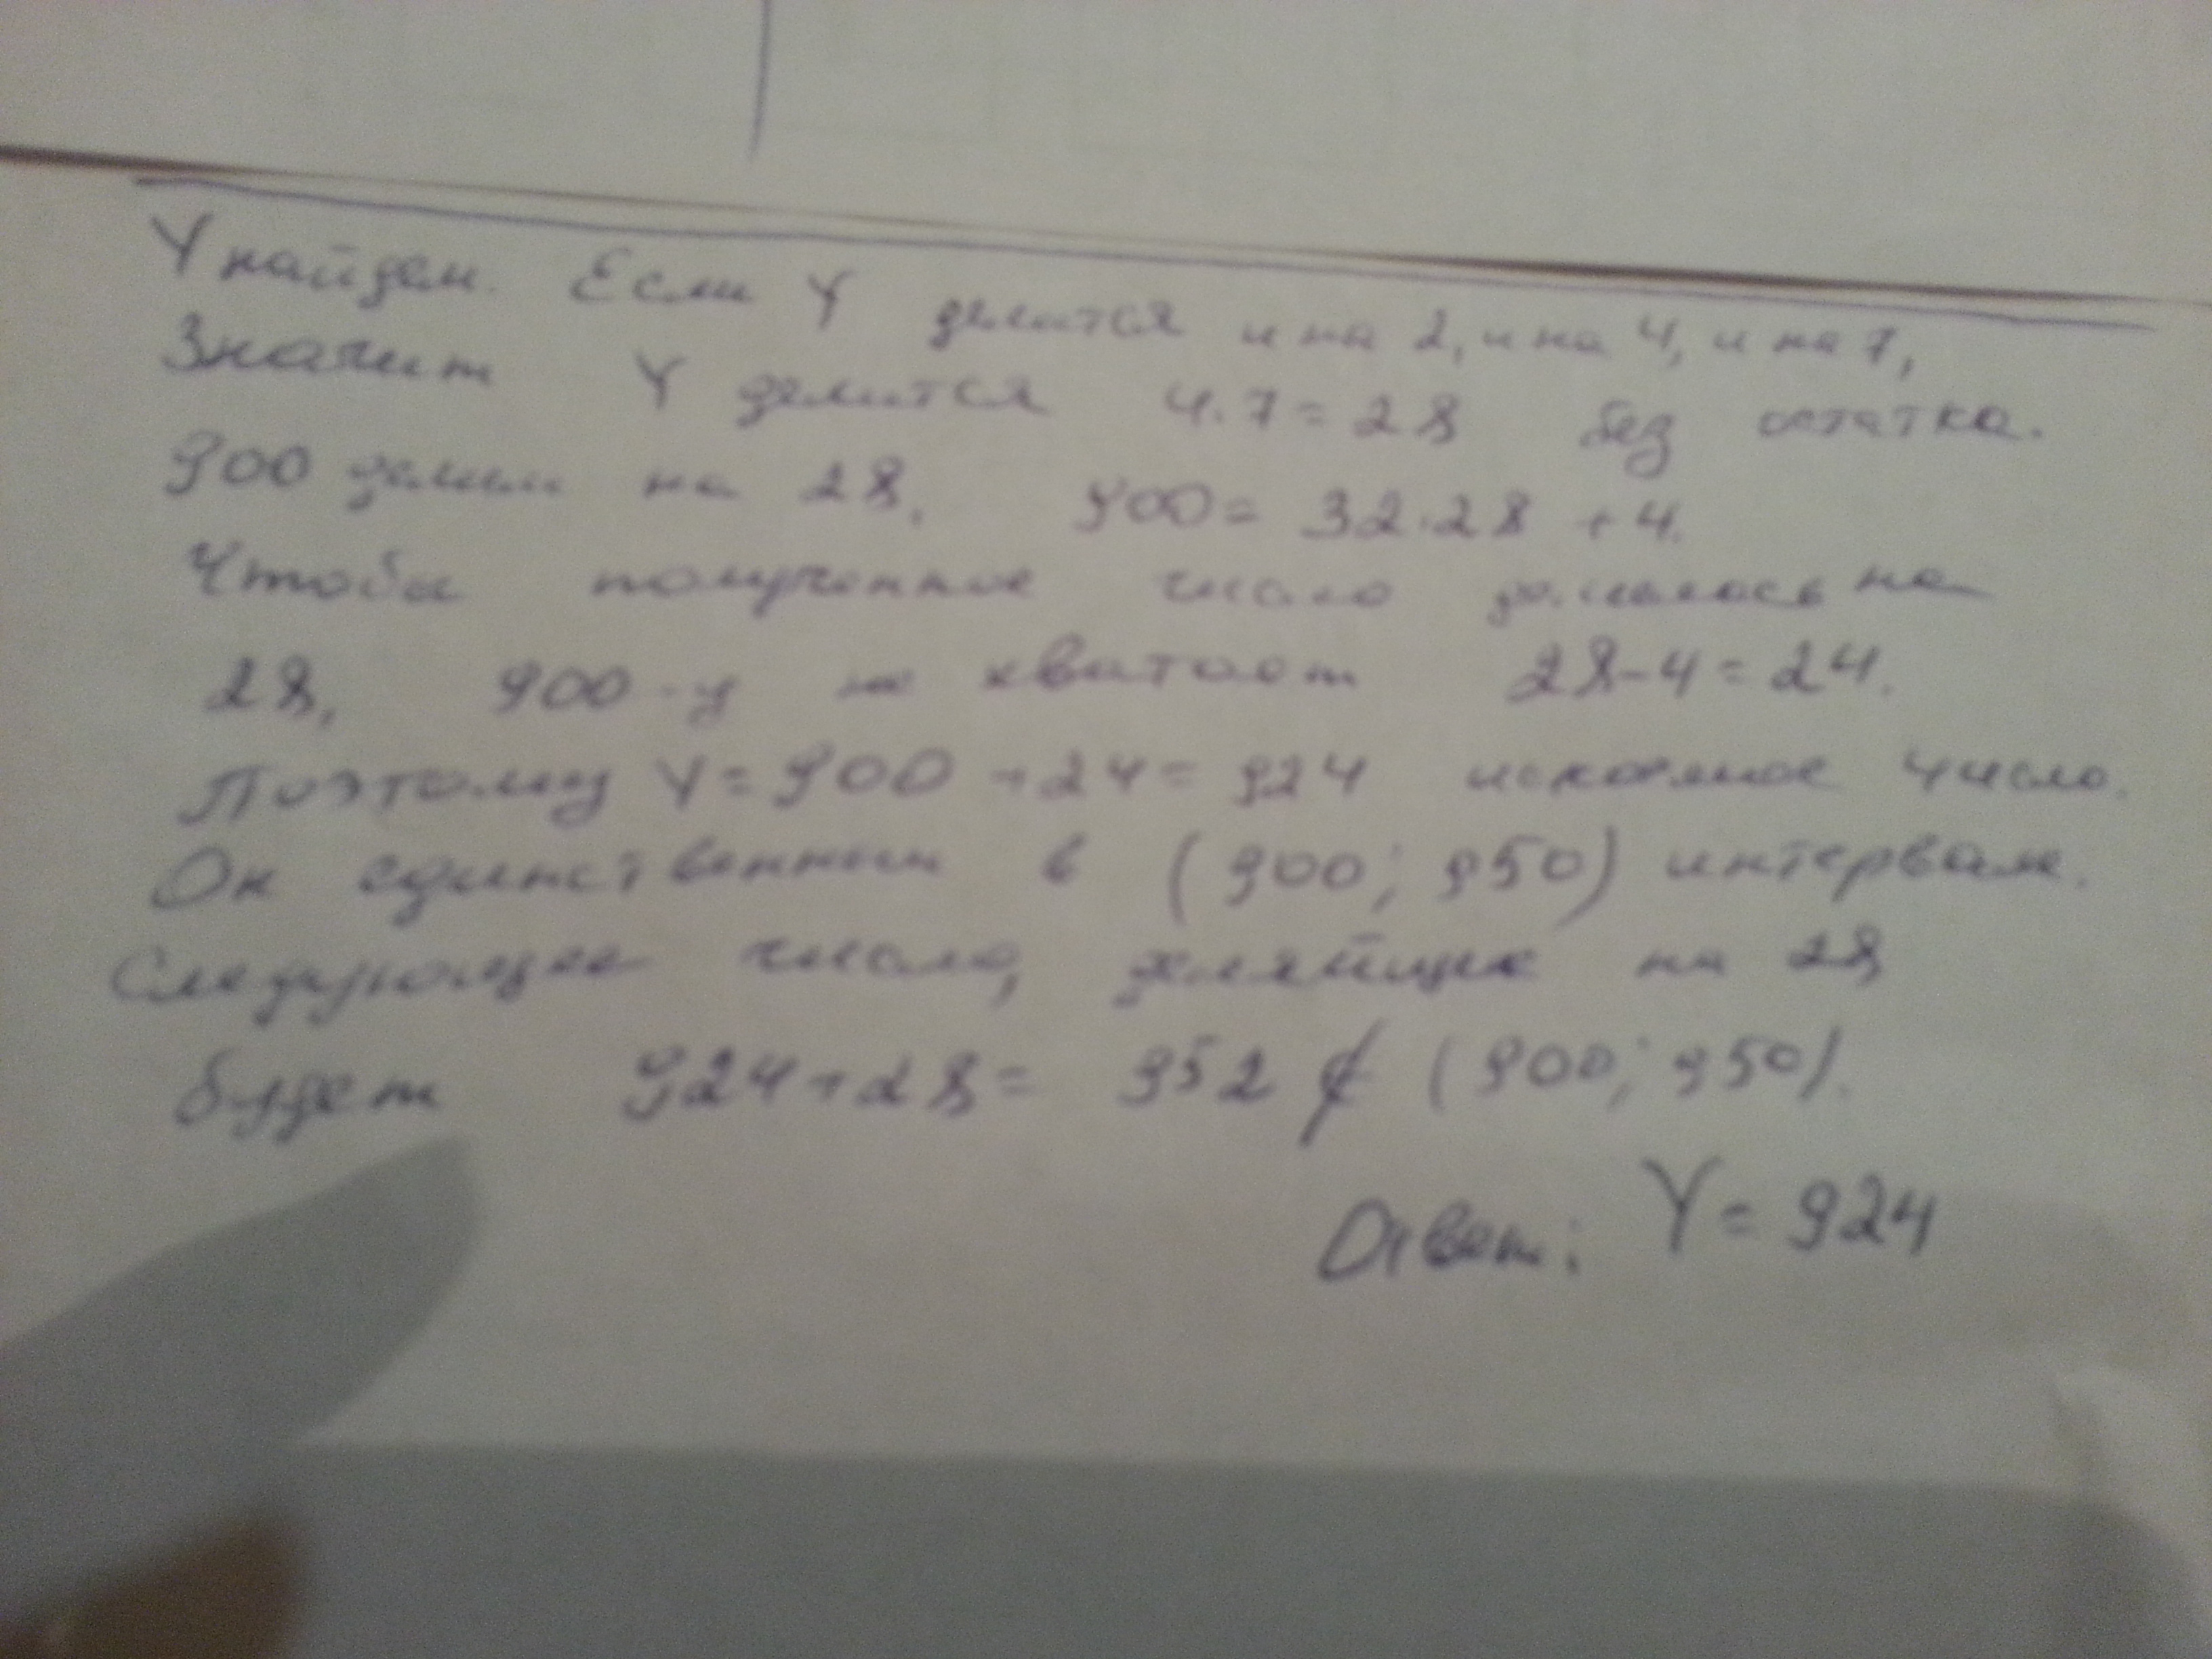 Y найдем. Если Y делится и на 2, и на 4, и на 7,
Значит Y делится 4·7=28 без остатка.
900 делим на 28. 900= 32·28 +4.
Чтобы полученное число делилось на
28, 900-у не хватает 28-4=24.
Поэтому Y=900+24=924 искомое число.
Он единственный в (900; 950) интервале.
Следующее число, делящие на 28
будет 924+28= 952 ∉ (900; 950).
Ответ: Y=924